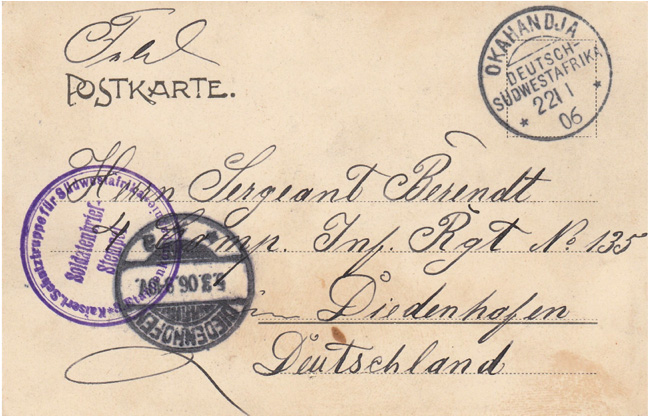 Feld
POSTKARTE.
OKAHANDJA
DEUTSCH-
SÜDWESTAFRIKA
22/1
06
Herrn Sergeant Berendt
4. Comp. Inf. Rgt No. 135
in Diedenhofen
Deutschland
Kaiserl. Schutztruppe für Südwestafrika
Soldatenbrief
Stempel
DIEDENHOFEN
.3.06.